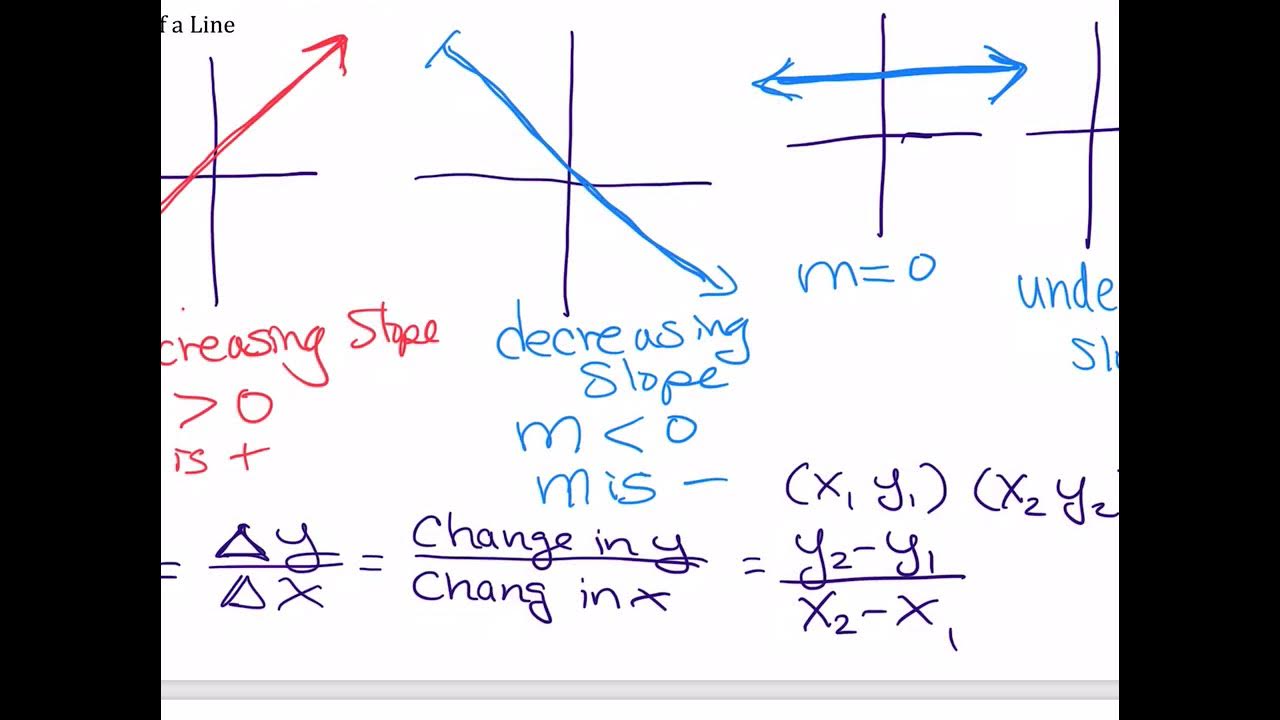 f a Line
creasing Slope
> 0
is +
decreasing
Slope
m < 0
m is −
m = 0
unde
Slo
(x₁ y₁) (x₂ y₂)
= Δy / Δx = Change in y / Chang in x = y₂ − y₁ / x₂ − x₁